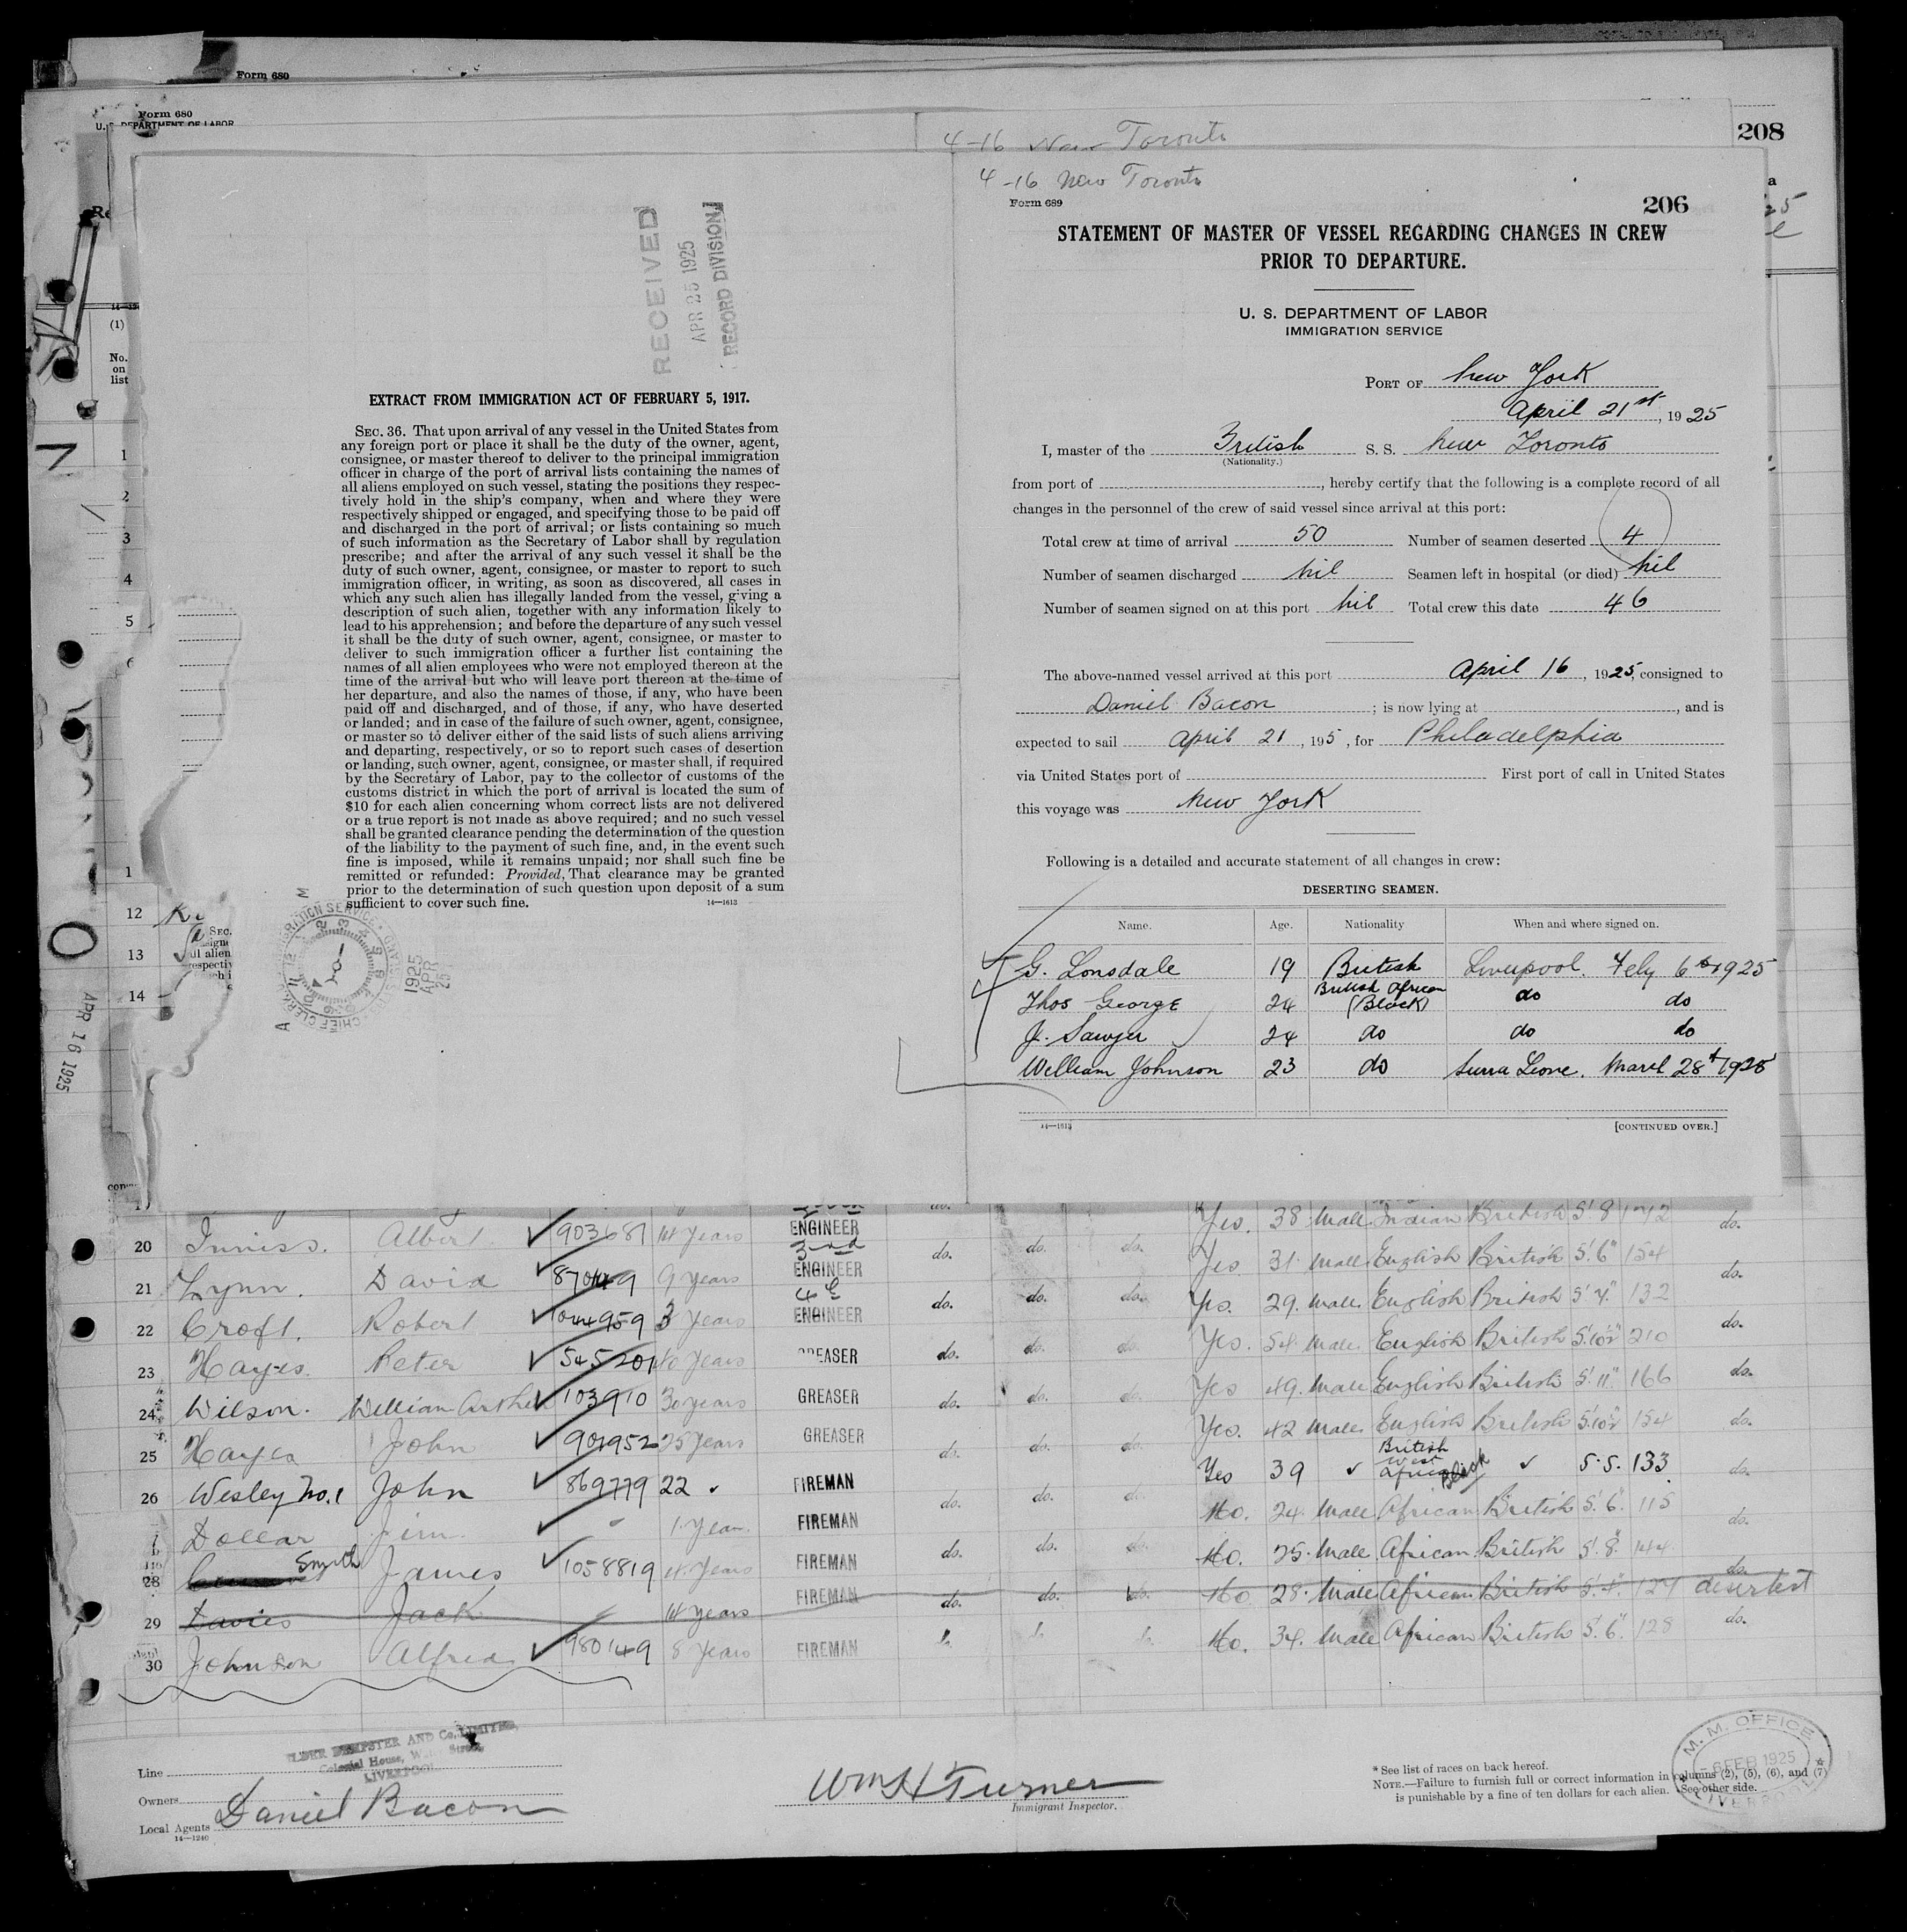 Form 680
Form 680
U. S. DEPARTMENT OF LABOR
208
4-16 New Toronto
4-16 New Toronto
Form 689
206
RECEIVED
APR 25 1925
RECORD DIVISION
STATEMENT OF MASTER OF VESSEL REGARDING CHANGES IN CREW
PRIOR TO DEPARTURE.
U. S. DEPARTMENT OF LABOR
IMMIGRATION SERVICE
PORT OF New York
April 21st, 1925
I, master of the British S. S. New Toronto
(Nationality.)
from port of , hereby certify that the following is a complete record of all
changes in the personnel of the crew of said vessel since arrival at this port:
Total crew at time of arrival 50 Number of seamen deserted 4
Number of seamen discharged nil Seamen left in hospital (or died) nil
Number of seamen signed on at this port nil Total crew this date 46
The above-named vessel arrived at this port April 16, 1925, consigned to
Daniel Bacon ; is now lying at , and is
expected to sail April 21, 195, for Philadelphia
via United States port of First port of call in United States
this voyage was New York
Following is a detailed and accurate statement of all changes in crew:
DESERTING SEAMEN.
Name. Age. Nationality When and where signed on.
G. Lonsdale 19 British Liverpool. Feby 6th 1925
Thos George 24 British African (Black) do do
J. Sawyer 24 do do do
William Johnson 23 do Surra Leone. March 28th 1925
14—1613
[CONTINUED OVER.]
EXTRACT FROM IMMIGRATION ACT OF FEBRUARY 5, 1917.
SEC. 36. That upon arrival of any vessel in the United States from
any foreign port or place it shall be the duty of the owner, agent,
consignee, or master thereof to deliver to the principal immigration
officer in charge of the port of arrival lists containing the names of
all aliens employed on such vessel, stating the positions they respec-
tively hold in the ship's company, when and where they were
respectively shipped or engaged, and specifying those to be paid off
and discharged in the port of arrival; or lists containing so much
of such information as the Secretary of Labor shall by regulation
prescribe; and after the arrival of any such vessel it shall be the
duty of such owner, agent, consignee, or master to report to such
immigration officer, in writing, as soon as discovered, all cases in
which any such alien has illegally landed from the vessel, giving a
description of such alien, together with any information likely to
lead to his apprehension; and before the departure of any such vessel
it shall be the duty of such owner, agent, consignee, or master to
deliver to such immigration officer a further list containing the
names of all alien employees who were not employed thereon at the
time of the arrival but who will leave port thereon at the time of
her departure, and also the names of those, if any, who have been
paid off and discharged, and of those, if any, who have deserted
or landed; and in case of the failure of such owner, agent, consignee,
or master so to deliver either of the said lists of such aliens arriving
and departing, respectively, or so to report such cases of desertion
or landing, such owner, agent, consignee, or master shall, if required
by the Secretary of Labor, pay to the collector of customs of the
customs district in which the port of arrival is located the sum of
$10 for each alien concerning whom correct lists are not delivered
or a true report is not made as above required; and no such vessel
shall be granted clearance pending the determination of the question
of the liability to the payment of such fine, and, in the event such
fine is imposed, while it remains unpaid; nor shall such fine be
remitted or refunded: Provided, That clearance may be granted
prior to the determination of such question upon deposit of a sum
sufficient to cover such fine.
14—1613
(1)
No.
on
list
1
2
3
4
5
12
13
14
APR 16 1925
1925
APR
25
Yes. 38 Male Indian British 5' 8 172 do.
20 Inniss. Albert 903687 14 Years ENGINEER do. do. do. Yes 31. Male English British 5' 6" 154 do.
21 Lynn. David 9 Years 3rd ENGINEER do. do. do. Yes. 29. Male English British 132 do.
22 Croft. Robert 044959 3 Years 4th ENGINEER do. do. do. Yes. 54 Male English British 5' 10½" 210 do.
23 Hayes. Peter 545201 40 Years GREASER do. do. do. Yes 49. Male English British 5' 11" 166 do.
24 Wilson. William Arthur 103910 30 Years GREASER do. do. do. Yes. 42 Male English British 5' 10½" 154 do.
25 Hayes John 901952 25 Years GREASER do. do. do. Yes 39 British West African Black 5-5. 133 do.
26 Wesley No. 1 John 869779 22 FIREMAN do. do. do. No. 24. Male African British 5' 6" 115 do.
Dollar Jim 1 Year. FIREMAN do. do. do. No. 25. Male African British 5' 8" 144 do.
28 Smyth James 1058819 4 Years FIREMAN do. do. do. No 28. Male African British 127 deserted
29 Davies Jack 14 Years FIREMAN No. 34. Male African British 5' 6" 128 do.
30 Johnson Alfred 980149 8 Years FIREMAN
ELDER DEMPSTER AND Co, LIMITED,
Colonial House, Water Street,
LIVERPOOL
Line
Owners
Local Agents Daniel Bacon
14—1240
Wm H Turner
Immigrant Inspector.
* See list of races on back hereof.
NOTE.—Failure to furnish full or correct information in columns (2), (5), (6), and (7)
is punishable by a fine of ten dollars for each alien. See other side.
M. M. OFFICE
6 FEB 1925
LIVERPOOL